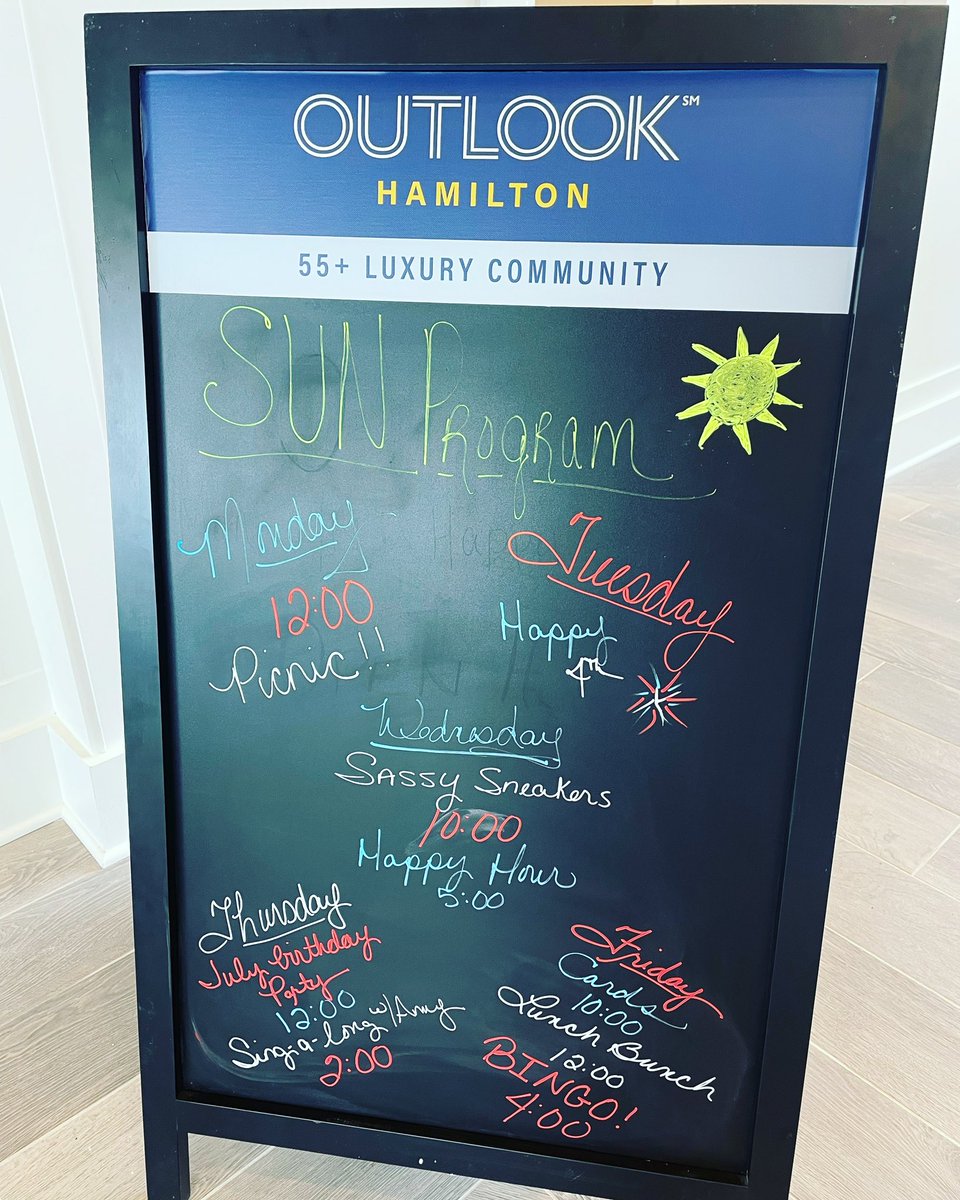 OUTLOOK℠
HAMILTON
55+ LUXURY COMMUNITY
SUN Program
Monday
12:00
Picnic!!
Tuesday
Happy
4th
Wednesday
Sassy Sneakers
10:00
Happy Hour
5:00
Thursday
July birthday
Party
12:00
Sing-a-long w/Amy
2:00
Friday
Cards
10:00
Lunch Bunch
12:00
BINGO!
4:00